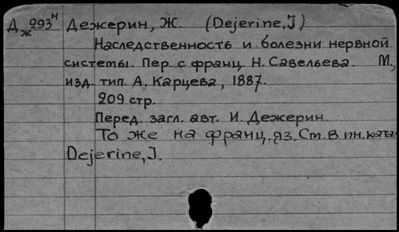 Д 293 н Дежерин, Ж. (Dejerine, J)
ж
Наследственность и болезни нервной
системы. Пер. с франц. Н. Савельева. М.,
изд. тип. А. Карцева, 1887.
209 стр.
Перед. загл. авт. И. Дежерин.
То же на франц. яз. См. в ин. кат.
Dejerine, J.